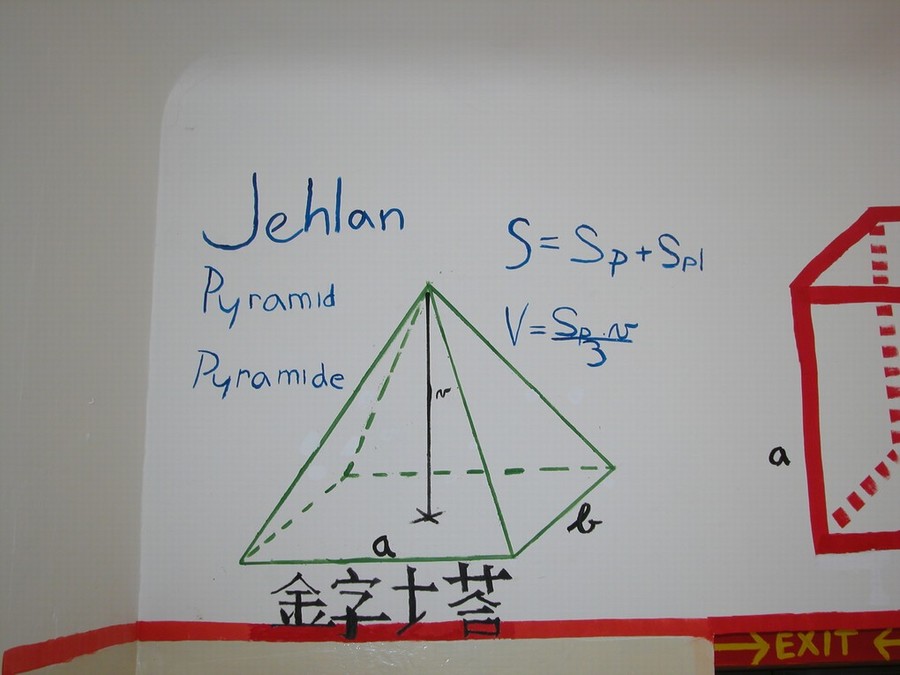 Jehlan
Pyramid
Pyramide
S = Sp + Spl
V = Sp . v / 3
v
a
b
金字塔
a
→ EXIT ←